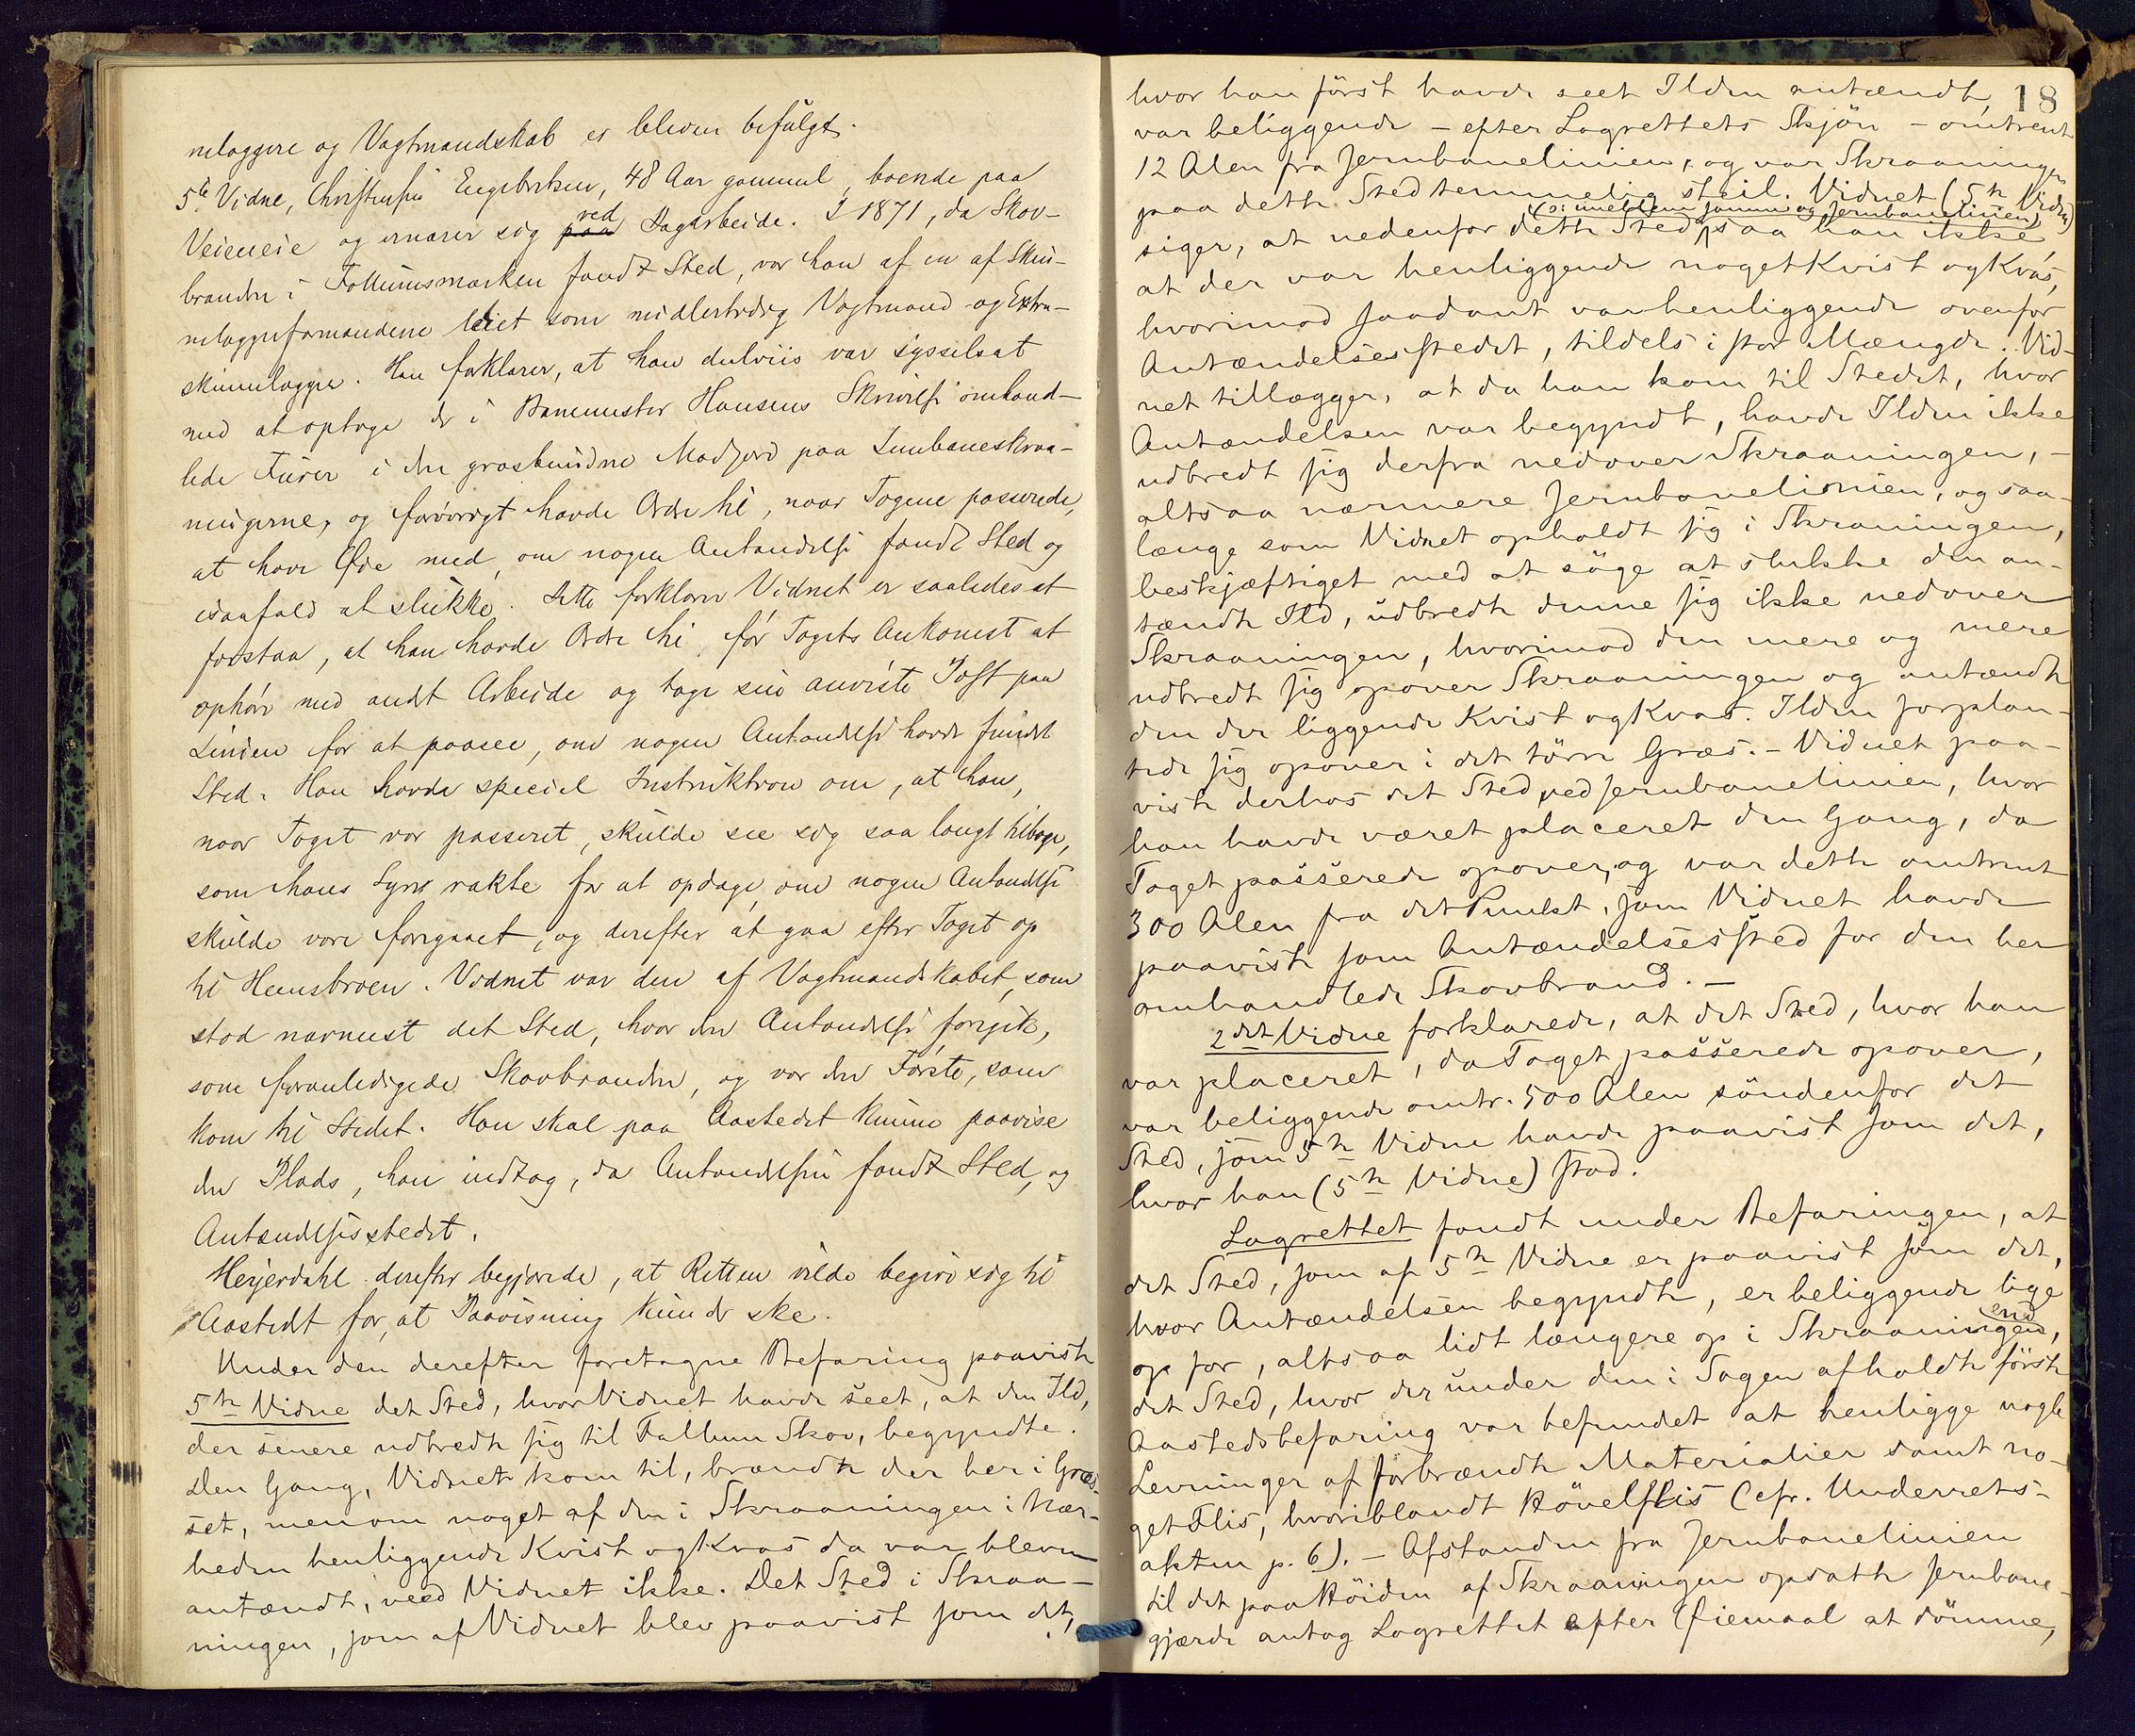 nelæggere og Vagtmandskab er bleven befulgt.
5te Vidne, Christensen Engebretsen, 48 Aar gammel, boende paa
Veieneie og ernærer sig paa ved Dagarbeide. I 1871, da Skov-
branden i Follumsmarken fandt Sted, var han af en af Skin-
nelæggerformændene leiet som midlertidig Vagtmand og Extra-
skinnelægger. Han forklarer, at han delviis var sysselsat
med at optage de i Banemester Hansens Skrivelse omhand-
lede Furer i den græsbundne Madjord paa Jernbaneskraa-
ningerne, og forøvrigt havde Ordre til, naar Togene passerede,
at have Øie med, om nogen Antændelse fandt Sted og
isaafald at slukke. Dette forklarer Vidnet er saaledes at
forstaa, at han havde Ordre til, før Togets Ankomst at
ophøre med andet Arbeide og tage sin anviste Post paa
Linien for at paasee, om nogen Antændelse havde fundet
Sted. Han havde speciel Instruktion om, at han,
naar Toget var passeret, skulde see sig saa langt tilbage,
som hans Syn rakte for at opdage, om nogen Antændelse
skulde være foregaaet, og derefter at gaa efter Toget op
til Hensbroen. Vidnet var den af Vagtmandskabet, som
stod nærmest det Sted, hvor den Antændelse foregik,
som foranledigede Skovbranden, og var den Første, som
kom til Stedet. Han skal paa Aastedet kunne paavise
den Plads, han indtog, da Antændelsen fandt Sted, og
Antændelsesstedet.
Heyerdahl derefter begjærede, at Retten vilde begive sig til
Aastedet for, at Paavisning kunde ske.
Under den derefter foretagne Befaring paaviste
5te Vidne det Sted, hvor Vidnet havde seet, at den Ild,
der senere udbredte sig til Follum Skov, begyndte.
Den Gang, Vidnet kom til, brændte der her i Græs-
set, men om noget af den i Skraaningen i Nær-
heden henliggende Kvist og Kvas da var bleven
antændt, veed Vidnet ikke. Det Sted i Skraa-
ningen, som af Vidnet blev paavist som det,
18
hvor han først havde seet Ilden antændt,
var beliggende – efter Lagrettets Skjøn – omtrent
12 Alen fra Jernbanelinien, og var Skraaningen
paa dette Sted temmelig steil. Vidnet (5te Vidne)
siger, at nedenfor dette Sted (ɔ: mellem samme og Jernbanelinien) saa han ikke,
at der var henliggende noget Kvist og Kvas,
hvorimod saadant var henliggende ovenfor
Antændelsesstedet, tildels i stor Mængde. Vid-
net tillægger, at da han kom til Stedet, hvor
Antændelsen var begyndt, havde Ilden ikke
udbredt sig derfra nedover Skraaningen, –
altsaa nærmere Jernbanelinien, og saa-
længe som Vidnet opholdt sig i Skraaningen,
beskjæftiget med at søge at slukke den an-
tændte Ild, udbredte denne sig ikke nedover
Skraaningen, hvorimod den mere og mere
udbredt sig opover Skraaningen og antændte
den der liggende Kvist og Kvas. Ilden forplan-
tede sig opover i det tørre Græs. – Vidnet paa-
viste derhos det Sted ved Jernbanelinien, hvor
han havde været placeret den Gang, da
Toget passerede opover, og var dette omtrent
300 Alen fra det Punkt, som Vidnet havde
paavist som Antændelsessted for den her
omhandlede Skovbrand. –
2det Vidne forklarede, at det Sted, hvor han
var placeret, da Toget passerede opover,
var beliggende omtr. 500 Alen søndenfor det
Sted, som 5te Vidne havde paavist som det,
hvor han (5te Vidne) stod.
Lagrettet fandt under Befaringen, at
det Sted, som af 5te Vidne er paavist som det,
hvor Antændelsen begyndte, er beliggende lige
op for, altsaa lidt længere op i Skraaningen, end
det Sted, hvor der under den i Sagen afholdte første
Aastedsbefaring var befundet at henligge nogle
Levninger af forbrændte Materialier samt no-
get Flis, hvoriblandt Høvelflis (cfr. Underrets-
akten p. 6). – Afstanden fra Jernbanelinien
til det paa Høiden af Skraaningen opsatte Jernbane-
gjærde antog Lagrettet efter Øiemaal at dømme,